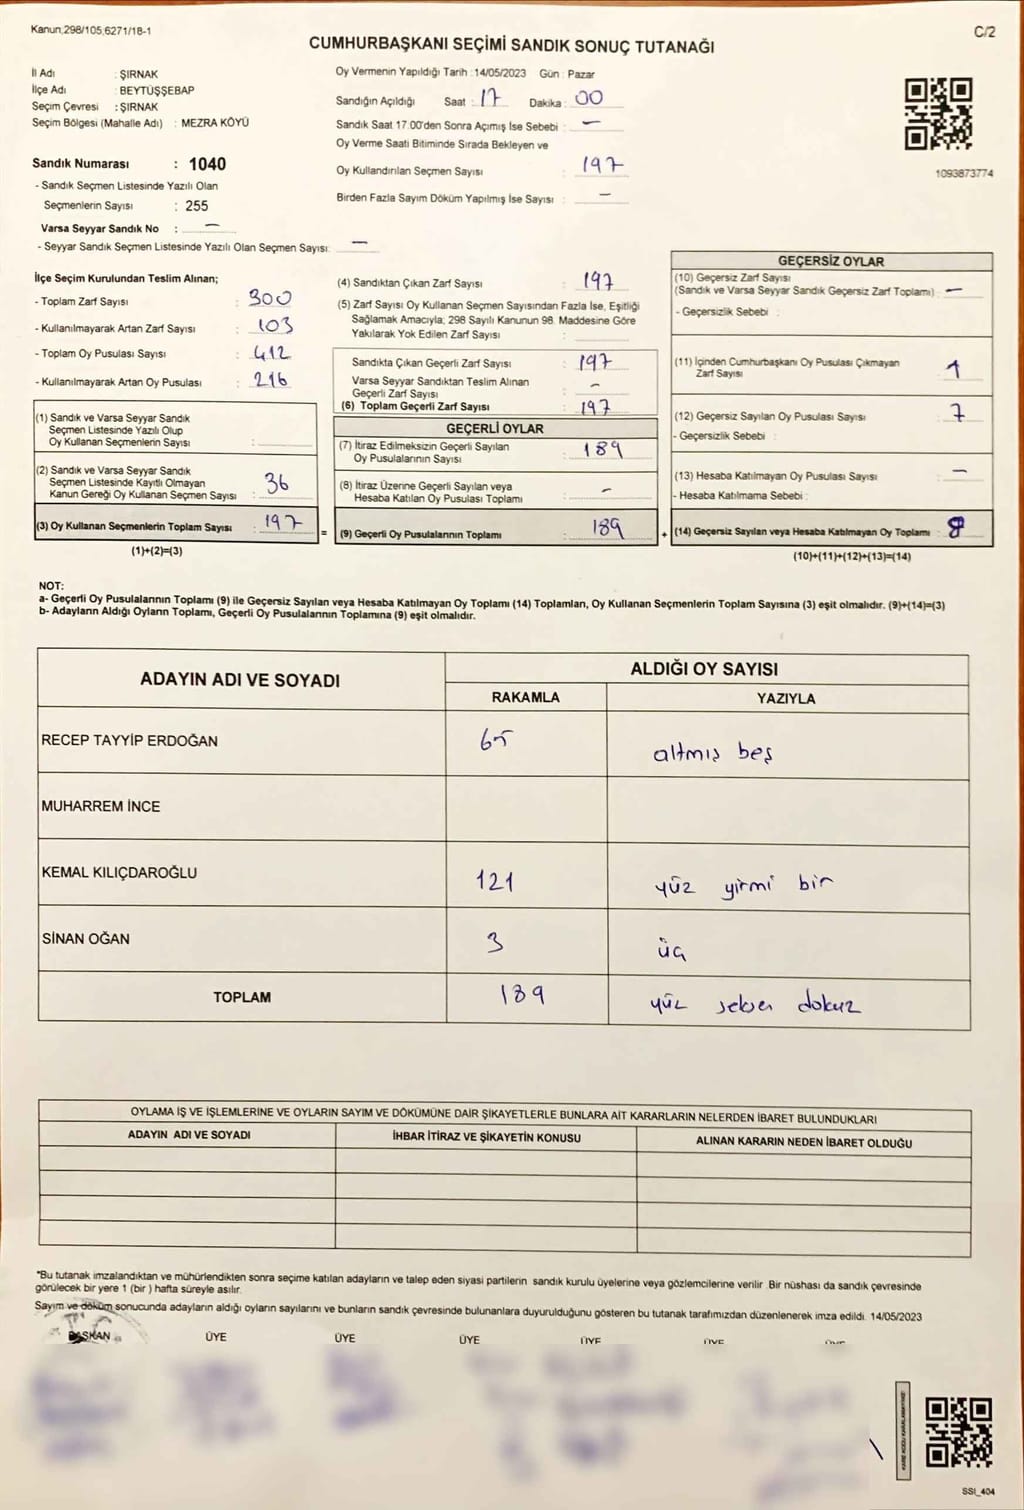 Kanun,298/105,6271/18-1
C/2
CUMHURBAŞKANI SEÇİMİ SANDIK SONUÇ TUTANAĞI
İl Adı : ŞIRNAK
İlçe Adı : BEYTÜŞŞEBAP
Seçim Çevresi : ŞIRNAK
Seçim Bölgesi (Mahalle Adı) : MEZRA KÖYÜ
Sandık Numarası : 1040
- Sandık Seçmen Listesinde Yazılı Olan
Seçmenlerin Sayısı : 255
Varsa Seyyar Sandık No : —
- Seyyar Sandık Seçmen Listesinde Yazılı Olan Seçmen Sayısı: —
Oy Vermenin Yapıldığı Tarih : 14/05/2023 Gün : Pazar
Sandığın Açıldığı Saat : 17 Dakika : 00
Sandık Saat 17:00'den Sonra Açımış İse Sebebi : —
Oy Verme Saati Bitiminde Sırada Bekleyen ve
Oy Kullandırılan Seçmen Sayısı : 197
Birden Fazla Sayım Döküm Yapılmış İse Sayısı : —
1093873774
İlçe Seçim Kurulundan Teslim Alınan;
- Toplam Zarf Sayısı : 300
- Kullanılmayarak Artan Zarf Sayısı : 103
- Toplam Oy Pusulası Sayısı : 412
- Kullanılmayarak Artan Oy Pusulası : 216
(1) Sandık ve Varsa Seyyar Sandık
Seçmen Listesinde Yazılı Olup
Oy Kullanan Seçmenlerin Sayısı :
(2) Sandık ve Varsa Seyyar Sandık
Seçmen Listesinde Kayıtlı Olmayan
Kanun Gereği Oy Kullanan Seçmen Sayısı : 36
(3) Oy Kullanan Seçmenlerin Toplam Sayısı : 197
(1)+(2)=(3)
=
(4) Sandıktan Çıkan Zarf Sayısı : 197
(5) Zarf Sayısı Oy Kullanan Seçmen Sayısından Fazla İse, Eşitliği
Sağlamak Amacıyla; 298 Sayılı Kanunun 98. Maddesine Göre
Yakılarak Yok Edilen Zarf Sayısı :
Sandıkta Çıkan Geçerli Zarf Sayısı : 197
Varsa Seyyar Sandıktan Teslim Alınan
Geçerli Zarf Sayısı : —
(6) Toplam Geçerli Zarf Sayısı : 197
GEÇERLİ OYLAR
(7) İtiraz Edilmeksizin Geçerli Sayılan
Oy Pusulalarının Sayısı : 189
(8) İtiraz Üzerine Geçerli Sayılan veya
Hesaba Katılan Oy Pusulası Toplamı : —
(9) Geçerli Oy Pusulalarının Toplamı : 189
+
GEÇERSİZ OYLAR
(10) Geçersiz Zarf Sayısı
(Sandık ve Varsa Seyyar Sandık Geçersiz Zarf Toplamı) : —
- Geçersizlik Sebebi :
(11) İçinden Cumhurbaşkanı Oy Pusulası Çıkmayan
Zarf Sayısı : 1
(12) Geçersiz Sayılan Oy Pusulası Sayısı : 7
- Geçersizlik Sebebi :
(13) Hesaba Katılmayan Oy Pusulası Sayısı : —
- Hesaba Katılmama Sebebi :
(14) Geçersiz Sayılan veya Hesaba Katılmayan Oy Toplamı : 8
(10)+(11)+(12)+(13)=(14)
NOT:
a- Geçerli Oy Pusulalarının Toplamı (9) ile Geçersiz Sayılan veya Hesaba Katılmayan Oy Toplamı (14) Toplamları, Oy Kullanan Seçmenlerin Toplam Sayısına (3) eşit olmalıdır. (9)+(14)=(3)
b- Adayların Aldığı Oyların Toplamı, Geçerli Oy Pusulalarının Toplamına (9) eşit olmalıdır.
ADAYIN ADI VE SOYADI
ALDIĞI OY SAYISI
RAKAMLA YAZIYLA
RECEP TAYYİP ERDOĞAN 65 altmış beş
MUHARREM İNCE
KEMAL KILIÇDAROĞLU 121 yüz yirmi bir
SİNAN OĞAN 3 üç
TOPLAM 189 yüz seksen dokuz
OYLAMA İŞ VE İŞLEMLERİNE VE OYLARIN SAYIM VE DÖKÜMÜNE DAİR ŞİKAYETLERLE BUNLARA AİT KARARLARIN NELERDEN İBARET BULUNDUKLARI
ADAYIN ADI VE SOYADI İHBAR İTİRAZ VE ŞİKAYETİN KONUSU ALINAN KARARIN NEDEN İBARET OLDUĞU
*Bu tutanak imzalandıktan ve mühürlendikten sonra seçime katılan adayların ve talep eden siyasi partilerin sandık kurulu üyelerine veya gözlemcilerine verilir. Bir nüshası da sandık çevresinde
görülecek bir yere 1 (bir ) hafta süreyle asılır.
Sayım ve döküm sonucunda adayların aldığı oyların sayılarını ve bunların sandık çevresinde bulunanlara duyurulduğunu gösteren bu tutanak tarafımızdan düzenlenerek imza edildi. 14/05/2023
BAŞKAN ÜYE ÜYE ÜYE ÜYE ÜYE ÜYE
SSI_404